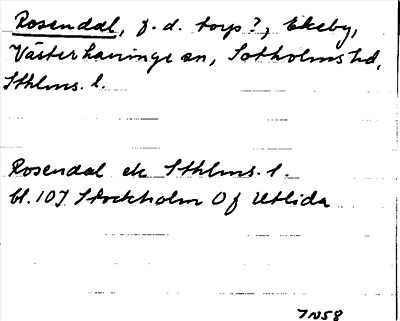 Rosendal, f.d. torp?, Ekeby,
Västerhaninge sn, Sotholms hd,
Sthlms. l.
Rosendal ek Sthlms. l.
bl. 107 Stockholm Of Utlida
7N58